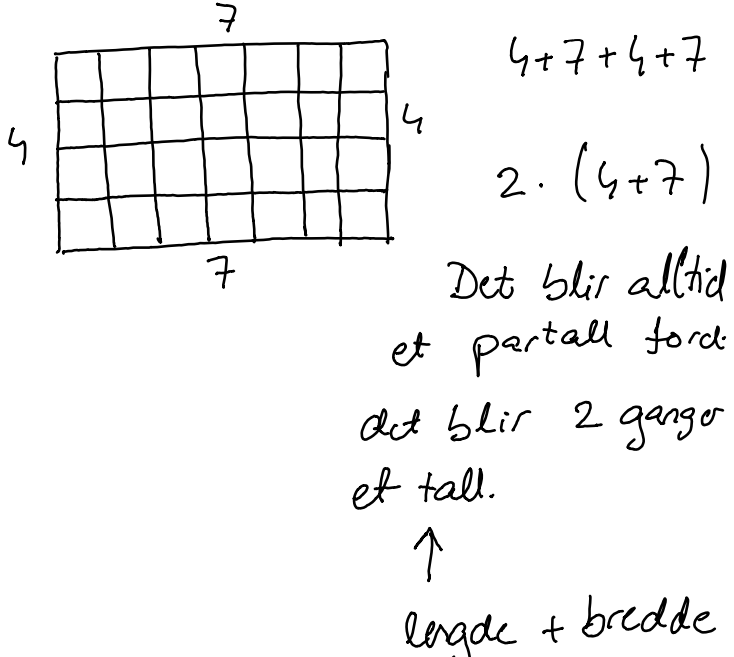 7
4+7+4+7
4
4
2 · (4+7)
7
Det blir alltid
et partall fordi
det blir 2 ganger
et tall.
↑
lengde + bredde